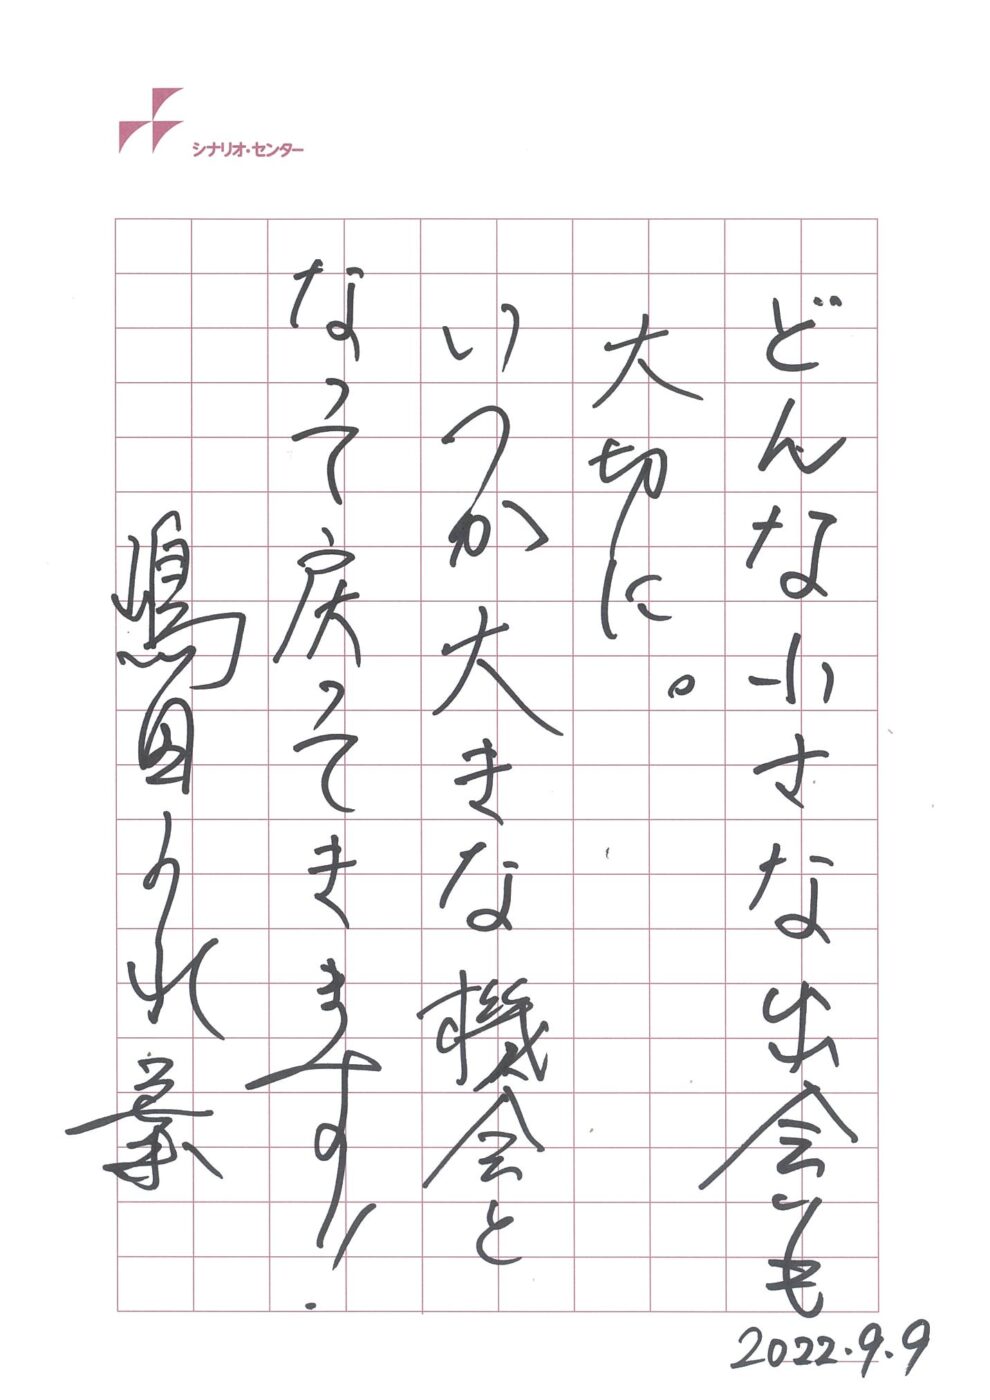 シナリオ・センター
どんな小さな出会でも
大切に。
いつか大きな機会と
なって戻ってきます!
嶋田うれ葉
2022.9.9